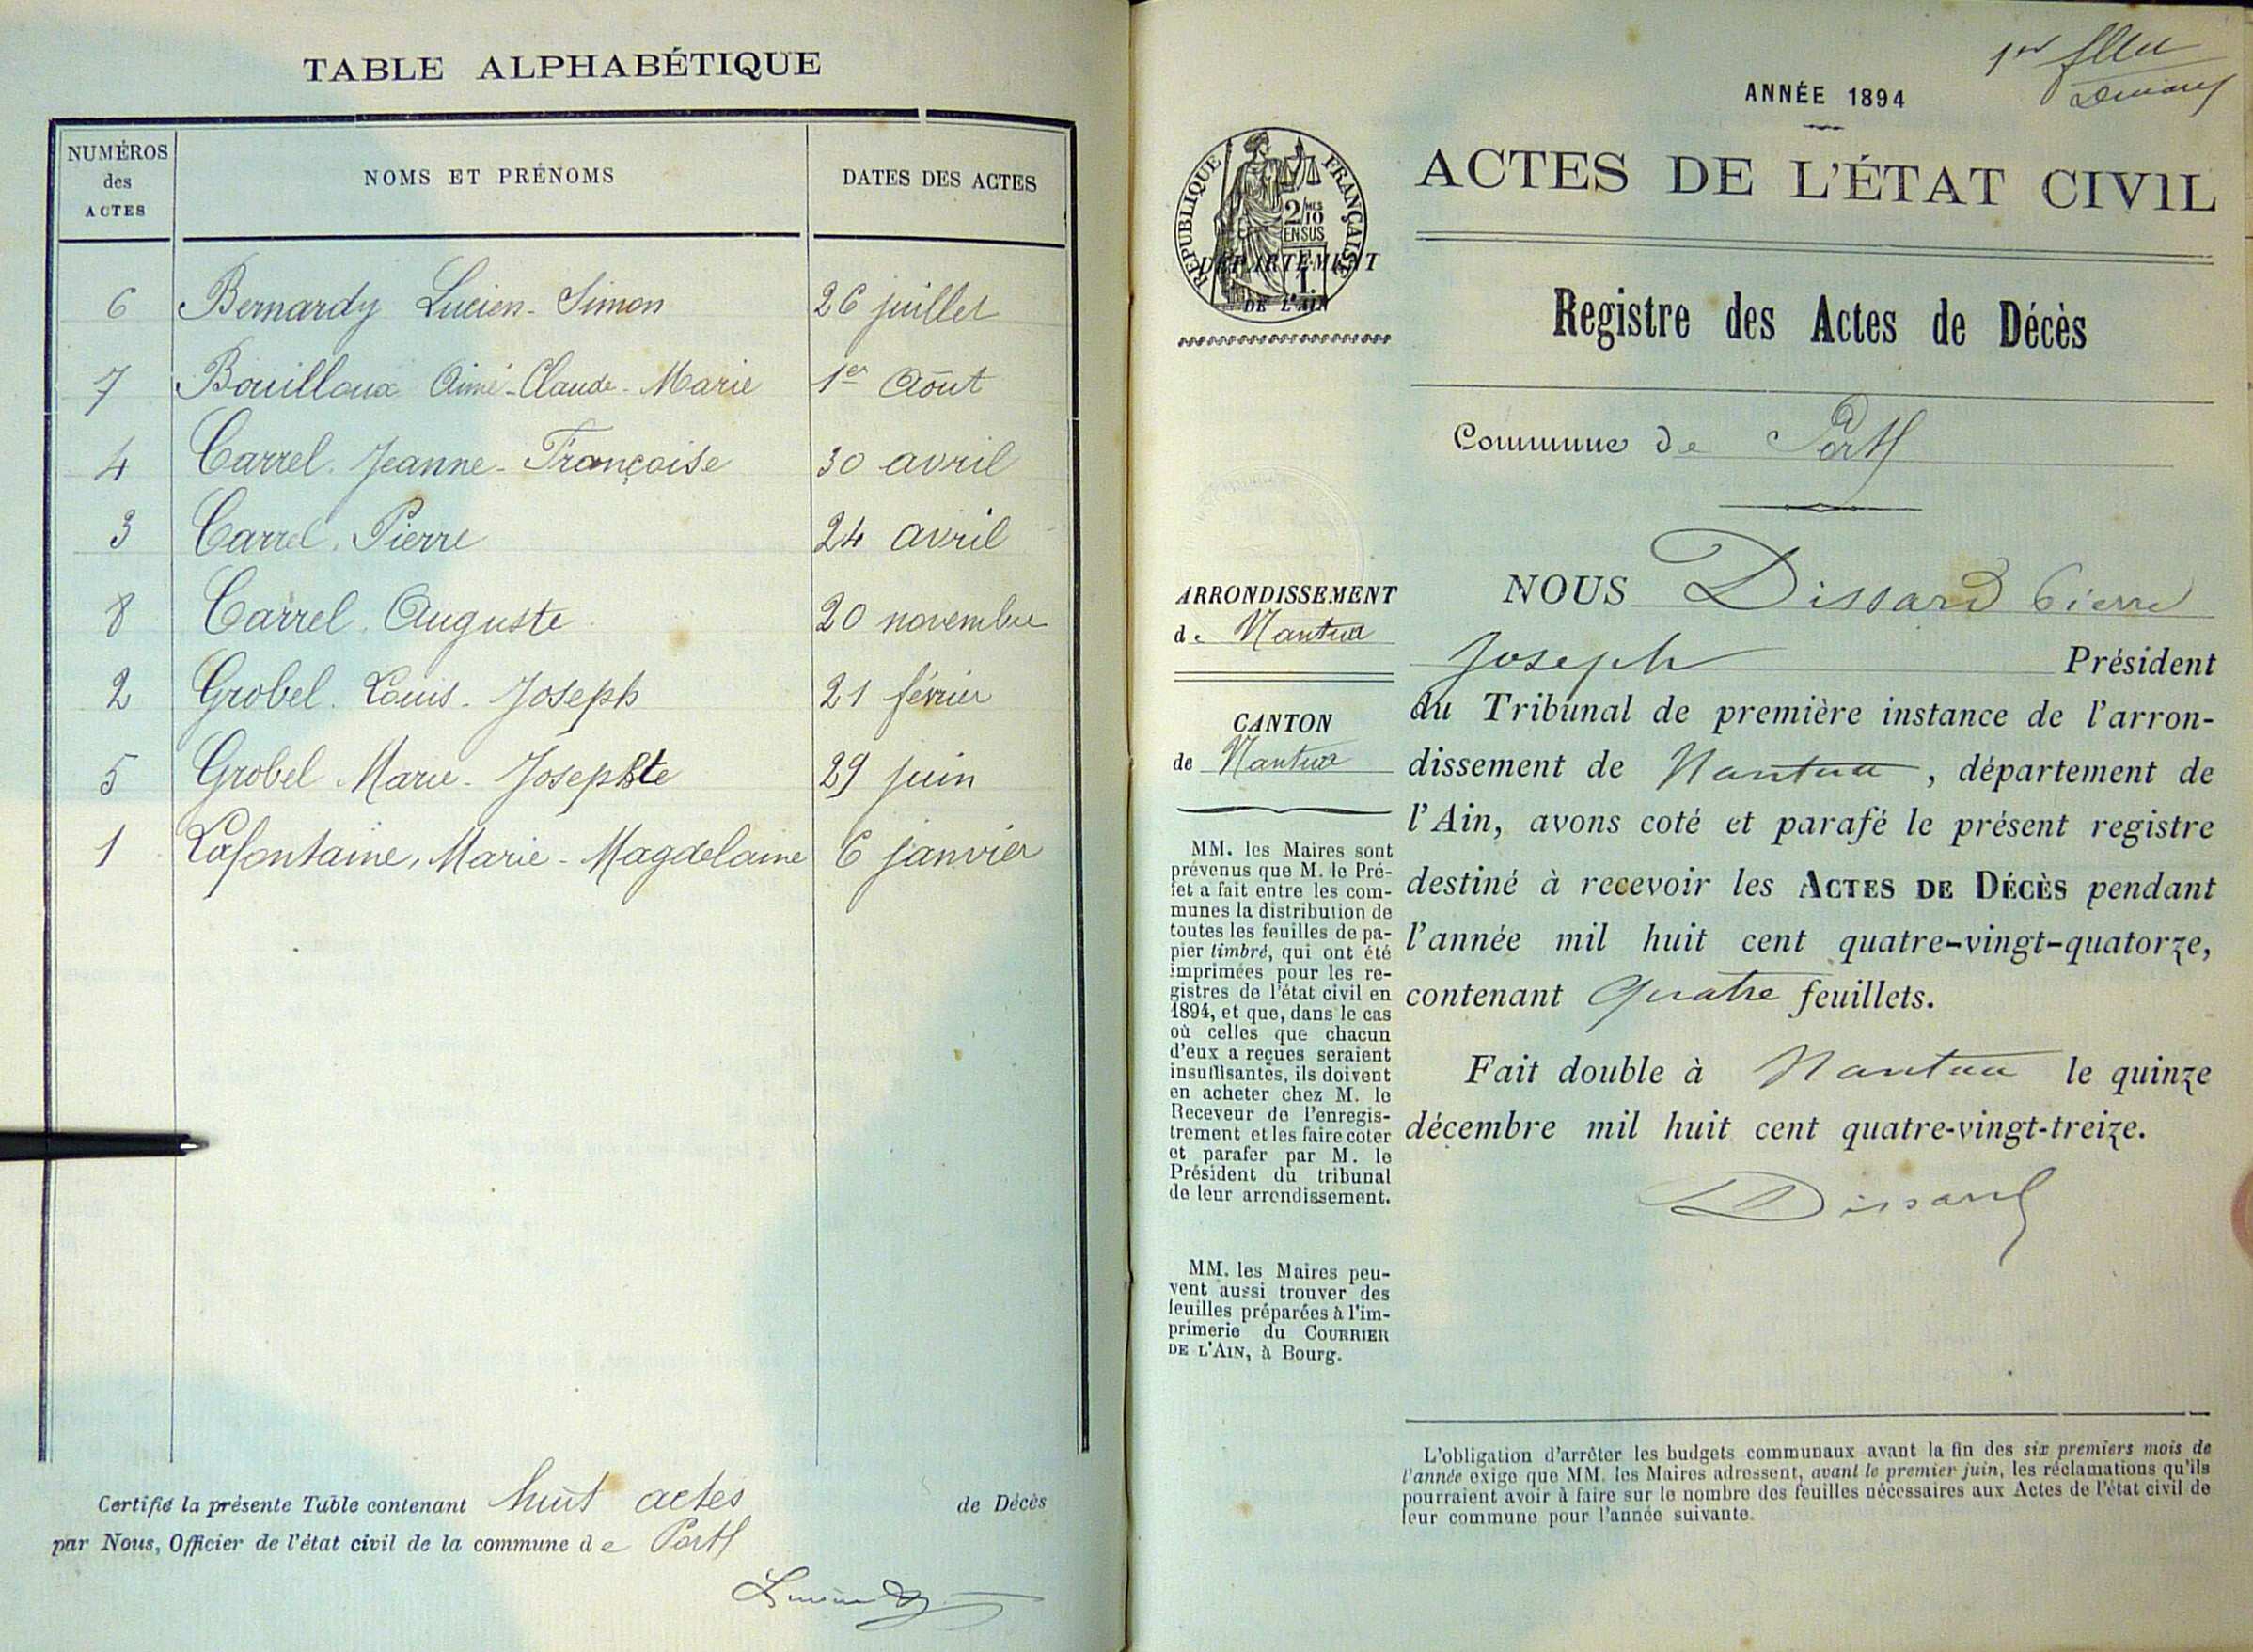 TABLE ALPHABÉTIQUE
NUMÉROS des ACTES
NOMS ET PRÉNOMS
DATES DES ACTES
6 Bernardy Lucien-Simon 26 juillet
7 Bouilloux Aimé-Claude-Marie 1er Août
4 Carrel Jeanne-Françoise 30 avril
3 Carrel Pierre 24 avril
8 Carrel Auguste 20 novembre
2 Grobel Louis-Joseph 21 février
5 Grobel Marie-Josephte 29 juin
1 Lafontaine, Marie-Magdelaine 6 janvier
Certifié la présente Table contenant huit actes de Décès
par Nous, Officier de l'état civil de la commune de Port
1er fllet
Dissard
ANNÉE 1894
RÉPUBLIQUE FRANÇAISE
2/10MES
EN SUS
1 f.
DÉPARTEMENT
DE L'AIN
ACTES DE L'ÉTAT CIVIL
Registre des Actes de Décès
Commune de Port
ARRONDISSEMENT
de Nantua
CANTON
de Nantua
MM. les Maires sont
prévenus que M. le Pré-
fet a fait entre les com-
munes la distribution de
toutes les feuilles de pa-
pier timbré, qui ont été
imprimées pour les re-
gistres de l'état civil en
1894, et que, dans le cas
où celles que chacun
d'eux a reçues seraient
insuffisantes, ils doivent
en acheter chez M. le
Receveur de l'enregis-
trement et les faire coter
et parafer par M. le
Président du tribunal
de leur arrondissement.
MM. les Maires peu-
vent aussi trouver des
feuilles préparées à l'im-
primerie du COURRIER
DE L'AIN, à Bourg.
NOUS Dissard Pierre
Joseph Président
du Tribunal de première instance de l'arron-
dissement de Nantua, département de
l'Ain, avons coté et parafé le présent registre
destiné à recevoir les ACTES DE DÉCÈS pendant
l'année mil huit cent quatre-vingt-quatorze,
contenant quatre feuillets.
Fait double à Nantua le quinze
décembre mil huit cent quatre-vingt-treize.
Dissard
L'obligation d'arrêter les budgets communaux avant la fin des six premiers mois de
l'année exige que MM. les Maires adressent, avant le premier juin, les réclamations qu'ils
pourraient avoir à faire sur le nombre des feuilles nécessaires aux Actes de l'état civil de
leur commune pour l'année suivante.